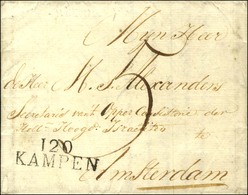 Myn Heer
de Heer M. S. Alexander
Secretaris van het Opper Consistorie der
Holl. Hoogd.
5
te
120
KAMPEN
Amsterdam